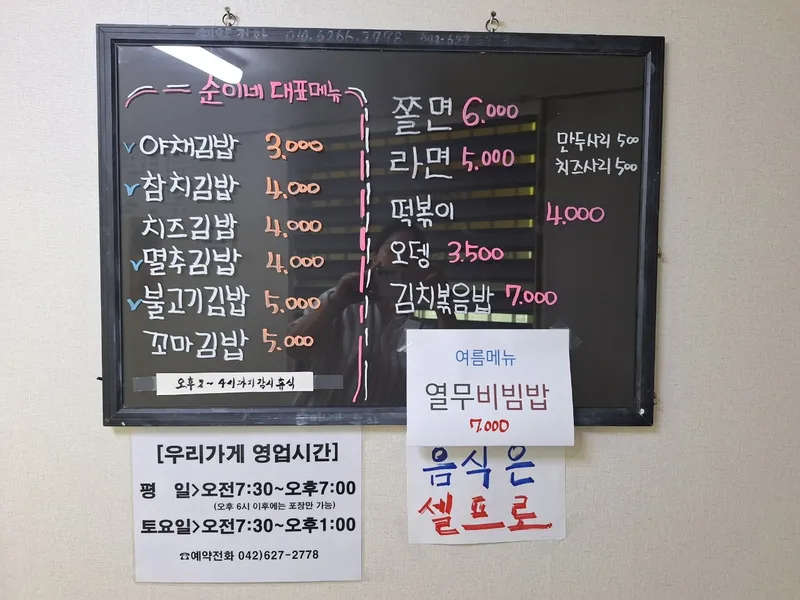 예약전화 010.6266.2778
순이네 대표메뉴
야채김밥 3.000
참치김밥 4.000
치즈김밥 4.000
멸추김밥 4.000
불고기김밥 5.000
꼬마김밥 5.000
오후 2~4시까지 잠시휴식
쫄면 6.000
라면 5.000
만두사리 500
치즈사리 500
떡볶이 4.000
오뎅 3.500
김치볶음밥 7.000
여름메뉴
열무비빔밥
7.000
음식은
셀프로
[우리가게 영업시간]
평 일>오전7:30~오후7:00
(오후 6시 이후에는 포장만 가능)
토요일>오전7:30~오후1:00
☎예약전화 042)627-2778